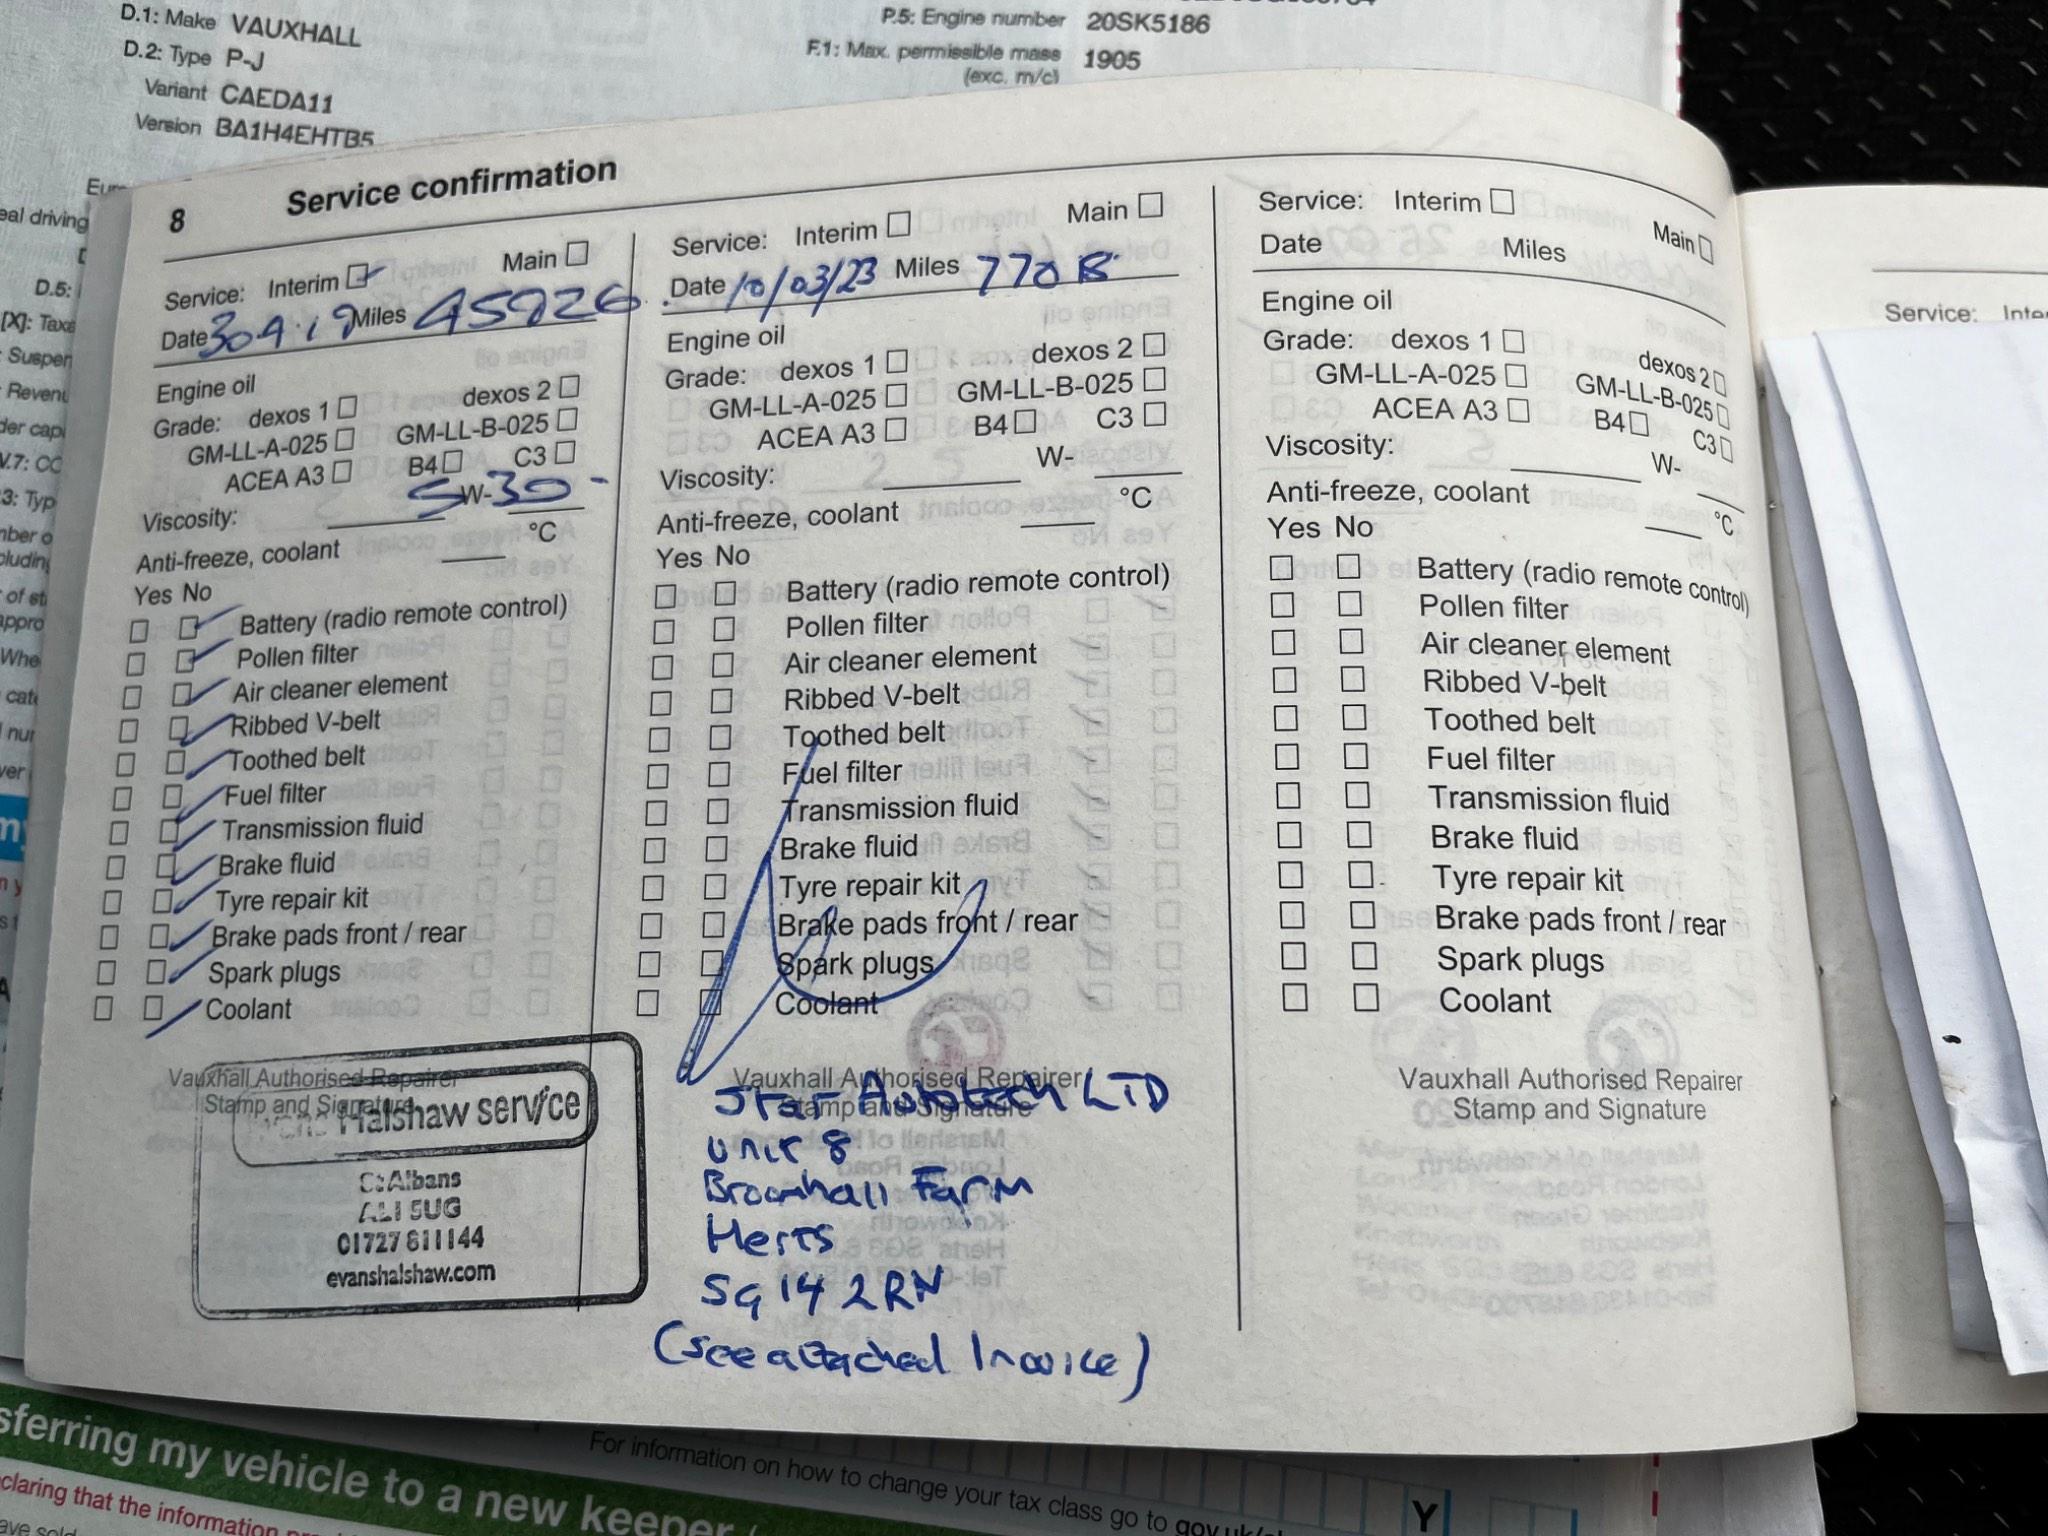 D.1: Make VAUXHALL
D.2: Type P-J
Variant CAEDA11
Version BA1H4EHTB5
P.5: Engine number 20SK5186
F.1: Max. permissible mass 1905
(exc. m/c)
eal driving
D.5:
[X]: Taxa
Suspen
Revenu
der cap
V.7: CO
3: Typ
mber o
cluding
of st
appro
Whe
cate
8 Service confirmation
Service: Interim Main
Date 30 4 19 Miles 45926
Engine oil
Grade: dexos 1 dexos 2
GM-LL-A-025 GM-LL-B-025
ACEA A3 B4 C3
Viscosity: 5 W- 30
Anti-freeze, coolant °C
Yes No
Battery (radio remote control)
Pollen filter
Air cleaner element
Ribbed V-belt
Toothed belt
Fuel filter
Transmission fluid
Brake fluid
Tyre repair kit
Brake pads front / rear
Spark plugs
Coolant
Vauxhall Authorised Repairer
Stamp and Signature
Halshaw service
St Albans
AL1 5UG
01727 811144
evanshalshaw.com
Service: Interim Main
Date 10/03/23 Miles
Engine oil
Grade: dexos 1 dexos 2
GM-LL-A-025 GM-LL-B-025
ACEA A3 B4 C3
Viscosity: W-
Anti-freeze, coolant °C
Yes No
Battery (radio remote control)
Pollen filter
Air cleaner element
Ribbed V-belt
Toothed belt
Fuel filter
Transmission fluid
Brake fluid
Tyre repair kit
Brake pads front / rear
Spark plugs
Coolant
Vauxhall Authorised Repairer
Stamp and Signature
Star Autotech LTD
Unit 8
Broomhall Farm
Herts
SG14 2RN
(see attached Invoice)
Service: Interim Main
Date Miles
Engine oil
Grade: dexos 1 dexos 2
GM-LL-A-025 GM-LL-B-025
ACEA A3 B4 C3
Viscosity: W-
Anti-freeze, coolant °C
Yes No
Battery (radio remote control)
Pollen filter
Air cleaner element
Ribbed V-belt
Toothed belt
Fuel filter
Transmission fluid
Brake fluid
Tyre repair kit
Brake pads front / rear
Spark plugs
Coolant
Vauxhall Authorised Repairer
Stamp and Signature
Service: Inte
sferring my vehicle to a new keeper
claring that the information
For information on how to change your tax class go to gov.uk/
Y